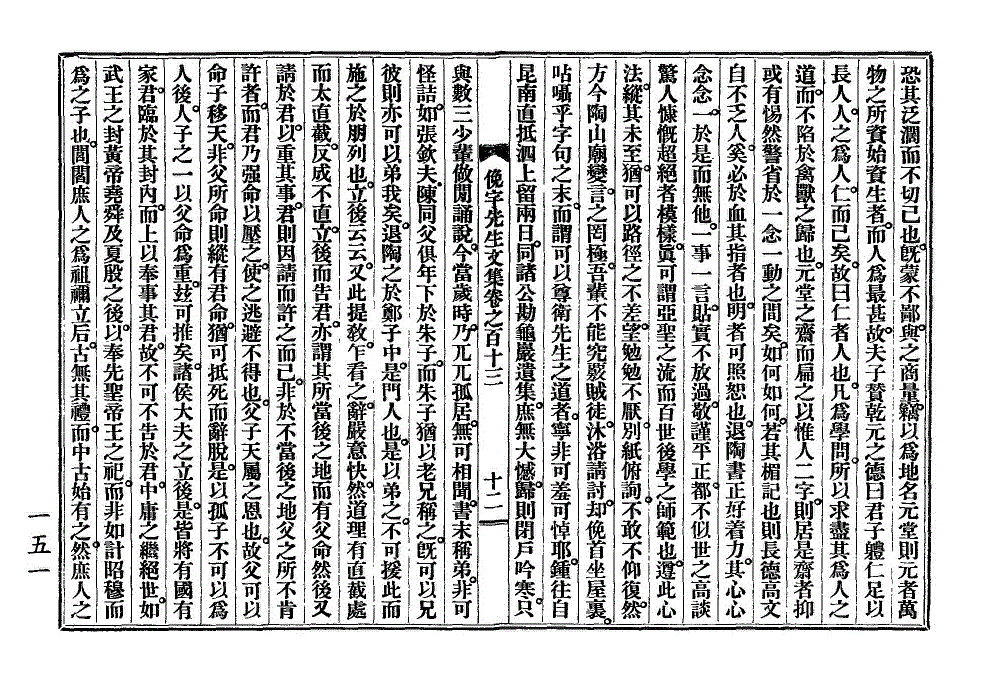 恐其泛濶而不切己也。旣蒙不鄙與之商量。竊以爲地名元堂則元者萬
物之所資始資生者。而人爲最甚。故夫子贊乾元之德曰君子體仁足以
長人。人之爲人。仁而已矣。故曰仁者人也。凡爲學問。所以求盡其爲人之
道。而不陷於禽獸之歸也。元堂之齋而扁之以惟人二字。則居是齋者抑
或有惕然警省於一念一動之間矣。如何如何。若其楣記也則長德高文
自不乏人。奚必於血其指者也。明者可照恕也。退陶書正好着力。其心心
念念。一於是而無他。一事一言。貼實不放過。敬謹平正。都不似世之高談
驚人慷慨超絕者模樣。眞可謂亞聖之流而百世後學之師範也。遵此心
法。縱其未至。猶可以路徑之不差。望勉勉不厭。別紙俯詢。不敢不仰復。然
方今陶山廟變。言之罔極。吾輩不能究覈賊徒。沐浴請討。却俛首坐屋裏。
呫囁乎字句之末。而謂可以尊衛先生之道者。寧非可羞可悼耶。鍾往自
昆南直抵泗上留兩日。同諸公勘龜巖遺集。庶無大憾。歸則閉戶吟寒。只
俛宇先生文集卷之百十三
十二
與數三少輩做閒誦說。今當歲時。乃兀兀孤居。無可相聞。書末稱弟。非可
怪詰。如張欽夫,陳同父俱年下於朱子。而朱子猶以老兄稱之。旣可以兄
彼則亦可以弟我矣。退陶之於鄭子中。是門人也。是以弟之。不可援此而
施之於朋列也。立後云云。又此提敎。乍看之。辭嚴意快。然道理有直截處
而太直截。反成不直。立後而告君。亦謂其所當後之地而有父命然後又
請於君。以重其事。君則因請而許之而已。非於不當後之地父之所不肯
許者。而君乃强命以壓之。使之逃避不得也。父子天屬之恩也。故父可以
命子移天。非父所命則縱有君命。猶可抵死而辭脫。是以孤子不可以爲
人後。人子之一以父命爲重。玆可推矣。諸侯大夫之立後。是皆將有國有
家。君臨於其封內。而上以奉事其君。故不可不告於君。中庸之繼絕世。如
武王之封黃帝堯舜及夏殷之後。以奉先聖帝王之祀。而非如計昭穆而
爲之子也。閭閻庶人之爲祖禰立后。古無其禮。而中古始有之。然庶人之
一五一